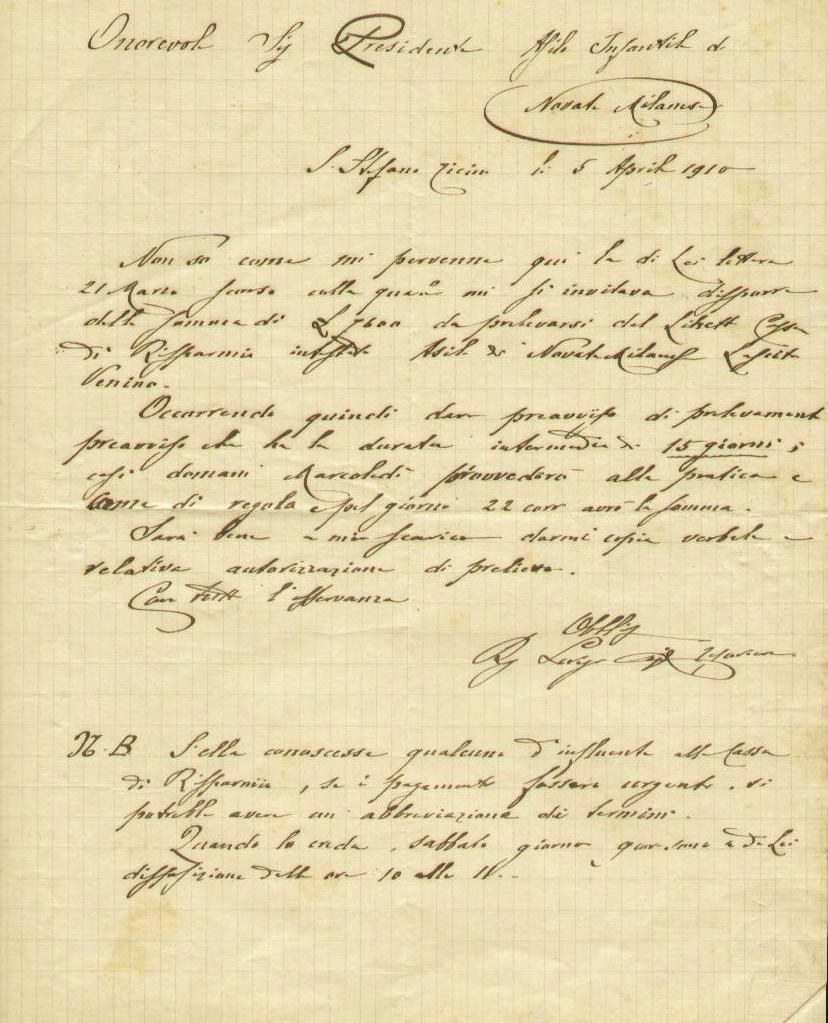 Onorevole Sig Presidente Asilo Infantile di
Novate Milanese
S. Stefano Ticino li 5 Aprile 1910
Non so come mi pervenne qui la di Lei lettera
21 Marzo scorso colla quale mi si invitava disporre
della somma di £ 7600 da prelevarsi dal Libretto Cassa
di Risparmio intestato Asilo di Novate Milanese Legato
Venino.
Occorrendo quindi dare preavviso di prelevamento
preavviso che ha la durata intermedia di 15 giorni;
così domani Mercoledì provvederò alla pratica e
come di regola pel giorno 22 corr avrò la somma.
Sarà bene a mio scarico darmi copia verbale e
relativa autorizzazione di prelievo.
Con tutta l'osservanza
Obblig
Rag Luigi
N.B S'ella conoscesse qualcuno d'influente alla Cassa
di Risparmio, se i pagamenti fossero urgenti, si
potrebbe avere un abbreviazione dei termini.
Quando lo creda, sabbato giorno 9 corr. sono a di Lei
disposizione dalle ore 10 alle 11..